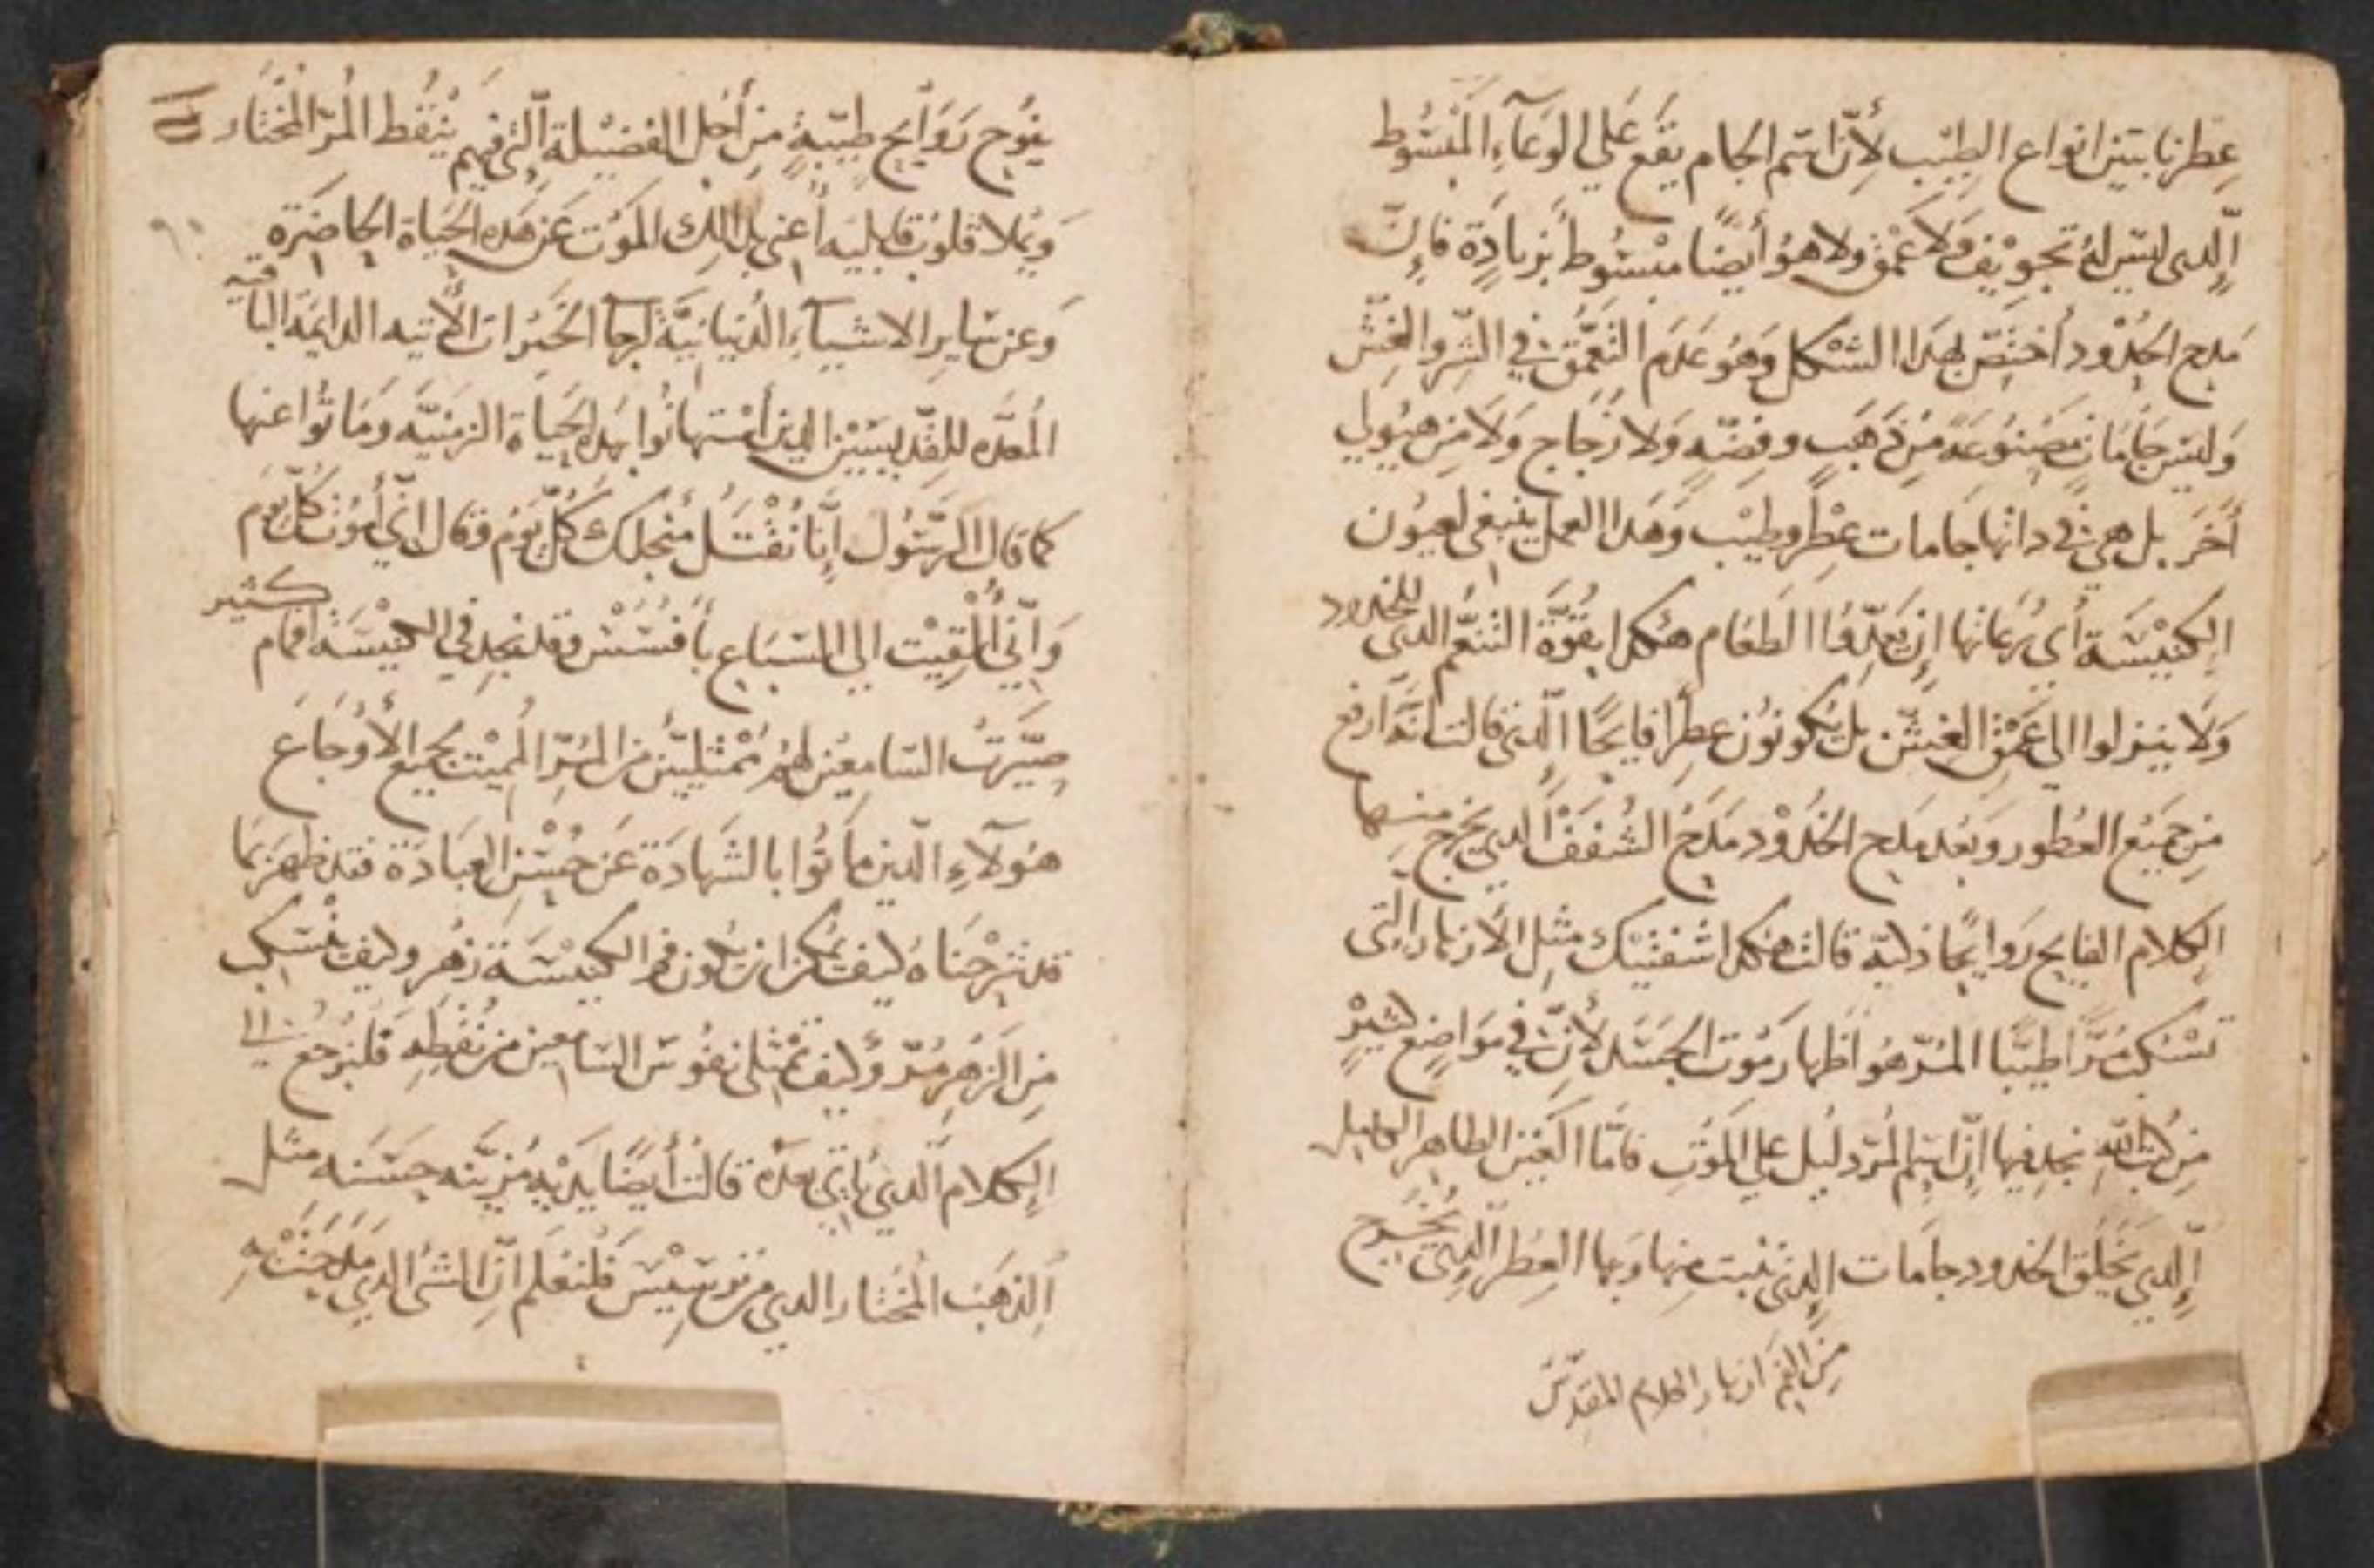 عطرنا بتين انواع الطيب لأن اسم الجام يقع علي الوعآء المبسُوط
الّدى ليس له تجويف ولا عمق ولا هو أيضًا مبسُوط بزيادةٍ فإن
مدح الخدُود أختصّ بهدا الشكل وهو عدم التعمّق في الشر والغش
وليس جامات مصنوعة من ذهب وفضه ولا زجاج ولا من هيُولي
أخر بل هى في داتها جامات عطر وطيب وهدا العمل ينبغى لعيون
الكنيسة أي رعاتها ان يعدّوا الطعام هكدا بقوّة التنعّم الدي للخدود
ولا ينزلوا الي عمق الغش بل يكونون عطرًا فايحًا الدى قالت انّه ارفع
من جميع العطور وبعد مدح الخدُود مدح الشفف الدي يخرج منها
الكلام الفايح روايحًا ذكيه قالت هكدا شفتيك مثل الأزهار التي
تسكب مرًّا طيبًا المرّ هو اظهار موت الجسد لأن في مواضع كثيرٍ
من كتب الله نجد فيها انّ اسم المرّ دليل علي الموت فامّا العين الطاهر
الّدي يخلق الخدود جامات الدى نبت منها وبها العطر الدي يخرج
من الفم ازهار الكلام المقدّس
يفوح روايح طيبةٍ من أجل الفضيلة التي فيهم ينقط المر المختار
ويملا قلوب قابليه أعني بدلك الموت عن هده الحياة الحاضرة
وعن ساير الاشيآء الدنيانيّة لرجا الخيرات الأتيه الدايمه الباقيه
المعدّه للقديسيين الدين أستهانوا بهده الحياة الزمنيّه وماتُوا عنها
كما قال الرسُول إنّا نُقتل منجلك كلّ يوم وقال انّي أموت كلّ يوم
وانّي ألقيت الي السباع بأفسُس وقد نجد في الكنيسة افمام كثير
صيّرتُ السامعين لهم ممتليين من المرّ المميت بجميع الأوجاع
هولآءِ الّدين ماتُوا بالشهادة عن حُسن العبادة فقد ظهر بما
قد شرحناه كيف يمكن ان تكون فم الكنيسة زهر وكيف تسكب
من الزهر مُرّ وكيف تمتلى نفوس السامعين من نُقطه فلنرجع الي
الكلام الّدي ياتي بعده قالت أيضًا يديه مُزيّنه حسنه مثل
الذهب المختار الدي من ترسيس فلنعلم انّ الشى الدي مدحته